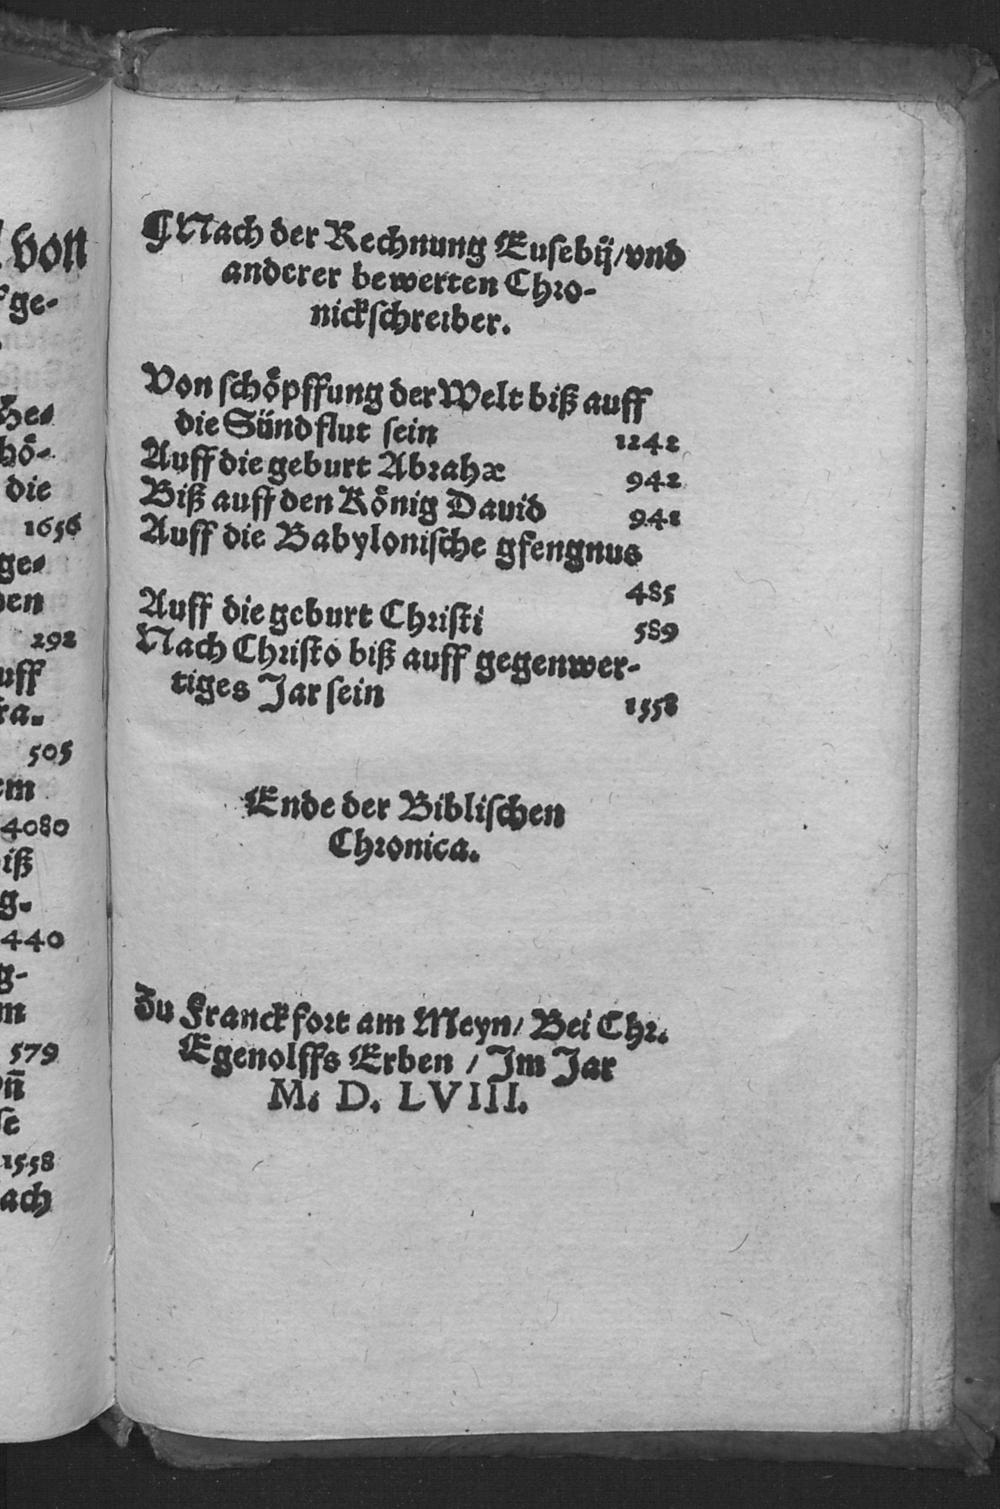 von
ge-
He-
hö-
die
1656
ge-
den
292
uff
ra-
505
em
4080
biß
g-
440
g-
m
579
vñ
se
1558
ach
¶Nach der Rechnung Eusebij/vnd
anderer bewerten Chro-
nickschreiber.
Von schöpffung der Welt biß auff
die Sündflut sein 2242
Auff die geburt Abrahæ 942
Biß auff den König Dauid 941
Auff die Babylonische gfengnus
485
Auff die geburt Christi 589
Nach Christo biß auff gegenwer-
tiges Jar sein 1558
Ende der Biblischen
Chronica.
Zu Franckfort am Meyn/ Bei Chr.
Egenolffs Erben / Im Jar
M. D. LVIII.